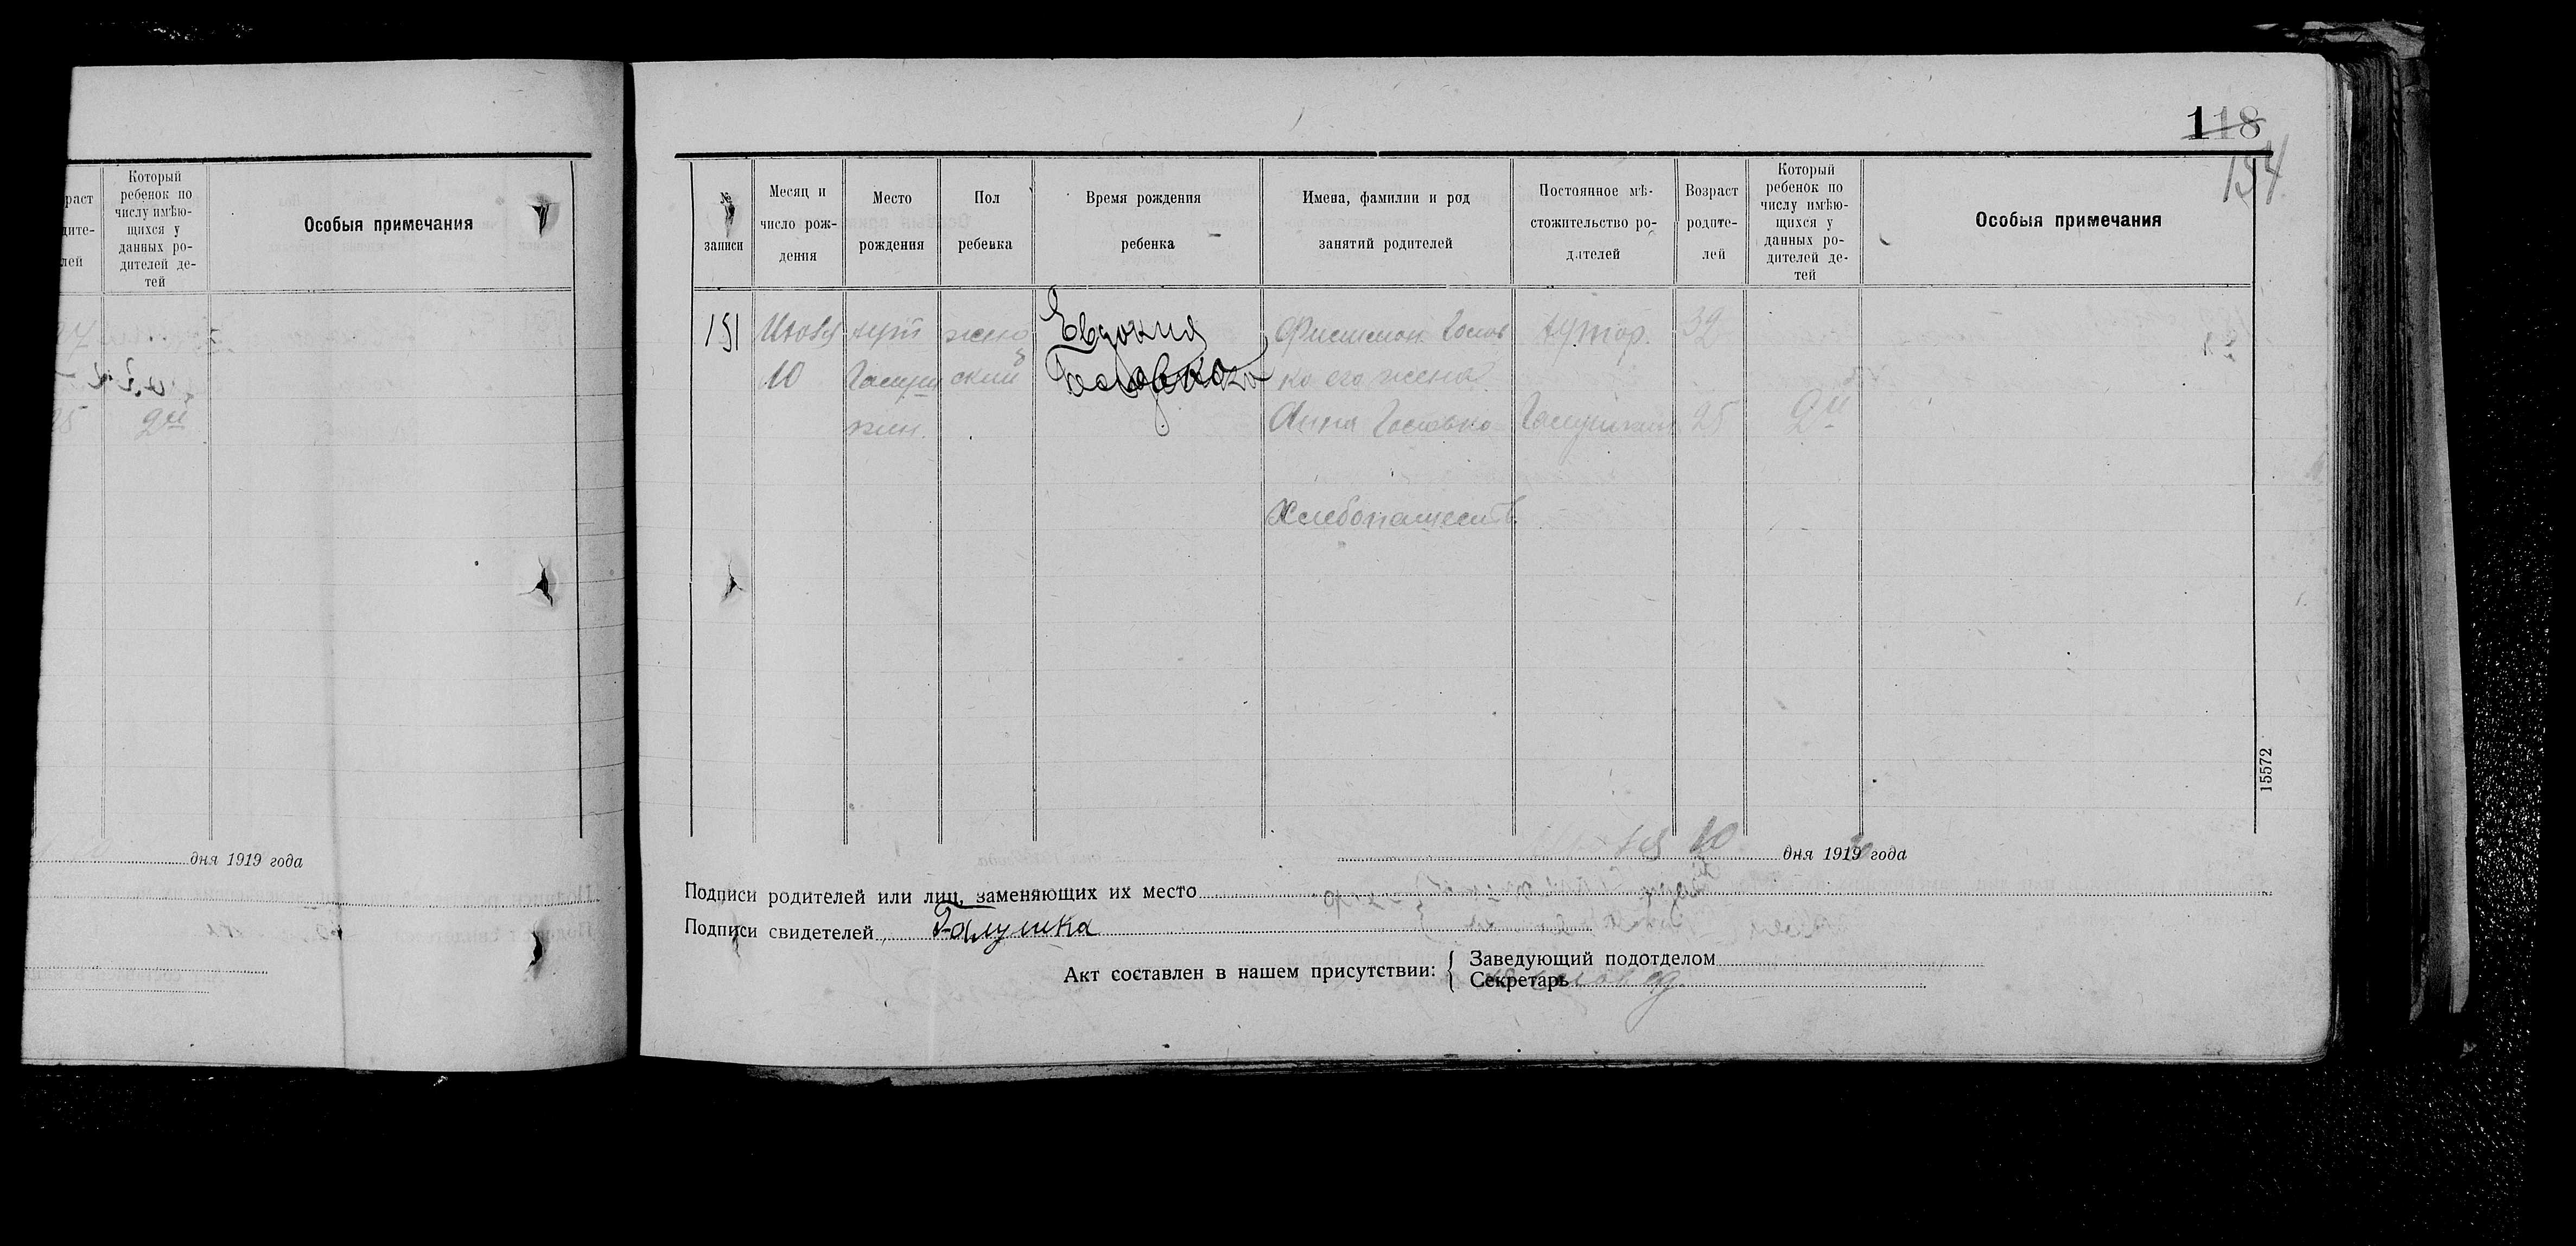 раст
дите-
лей
Который
ребенок по
числу имѣю-
щихся у
данных ро-
дителей де-
тей
Особыя примечания
25
2й
дня 1919 года
118
154
№
записи
Месяц и
число рож-
дения
Место
рождения
Пол
ребенка
Время рождения
ребенка
Имена, фамилии и род
занятий родителей
Постоянное мѣ-
стожительство ро-
дителей
Возраст
родите-
лей
Который
ребенок по
числу имѣю-
щихся у
данных ро-
дителей де-
тей
Особыя примечания
151
10
хут
жен
ский
Евдокия
Головко
Филимон Голов
ко его жена
Анна Головко
Хлебопашеств.
хутор.
32
25
2й
15572
10 дня 1919 года
Подписи родителей или лиц, заменяющих их место
Подписи свидетелей Галушка
Акт составлен в нашем присутствии:
Заведующий подотделом
Секретарь